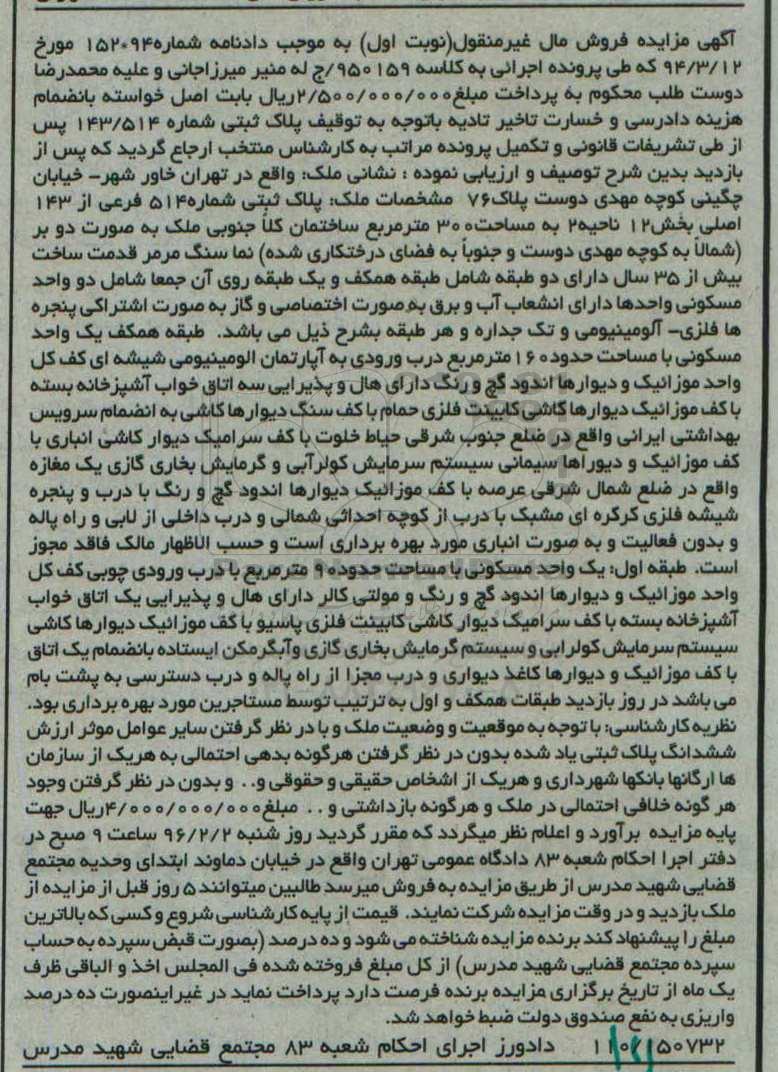 آگهی مزایده فروش مال غیرمنقول(نوبت اول) به موجب دادنامه شماره۱۵۲۰۹۴ مورخ
۹۴/۳/۱۲ که طی پرونده اجرائی به کلاسه ۹۵۰۱۵۹/ج له منیر میرزاجانی و علیه محمدرضا
دوست طلب محکوم به پرداخت مبلغ۲/۵۰۰/۰۰۰/۰۰۰ریال بابت اصل خواسته بانضمام
هزینه دادرسی و خسارت تاخیر تادیه باتوجه به توقیف پلاک ثبتی شماره ۱۴۳/۵۱۴ پس
از طی تشریفات قانونی و تکمیل پرونده مراتب به کارشناس منتخب ارجاع گردید که پس از
بازدید بدین شرح توصیف و ارزیابی نموده : نشانی ملک: واقع در تهران خاور شهر- خیابان
چگینی کوچه مهدی دوست پلاک۷۶ مشخصات ملک: پلاک ثبتی شماره۵۱۴ فرعی از ۱۴۳
اصلی بخش۱۲ ناحیه۲ به مساحت۳۰۰ مترمربع ساختمان کلاً جنوبی ملک به صورت دو بر
(شمالاً به کوچه مهدی دوست و جنوباً به فضای درختکاری شده) نما سنگ مرمر قدمت ساخت
بیش از ۳۵ سال دارای دو طبقه شامل طبقه همکف و یک طبقه روی آن جمعا شامل دو واحد
مسکونی واحدها دارای انشعاب آب و برق به صورت اختصاصی و گاز به صورت اشتراکی پنجره
ها فلزی- آلومینیومی و تک جداره و هر طبقه بشرح ذیل می باشد. طبقه همکف یک واحد
مسکونی با مساحت حدود۱۶۰ مترمربع درب ورودی به آپارتمان الومینیومی شیشه ای کف کل
واحد موزائیک و دیوارها اندود گچ و رنگ دارای هال و پذیرایی سه اتاق خواب آشپزخانه بسته
با کف موزائیک دیوارها کاشی کابینت فلزی حمام با کف سنگ دیوارها کاشی به انضمام سرویس
بهداشتی ایرانی واقع در ضلع جنوب شرقی حیاط خلوت با کف سرامیک دیوار کاشی انباری با
کف موزائیک و دیوراها سیمانی سیستم سرمایش کولرآبی و گرمایش بخاری گازی یک مغازه
واقع در ضلع شمال شرقی عرصه با کف موزائیک دیوارها اندود گچ و رنگ با درب و پنجره
شیشه فلزی کرکره ای مشبک با درب از کوچه احداثی شمالی و درب داخلی از لابی و راه پاله
و بدون فعالیت و به صورت انباری مورد بهره برداری است و حسب الاظهار مالک فاقد مجوز
است. طبقه اول: یک واحد مسکونی با مساحت حدود۹۰ مترمربع با درب ورودی چوبی کف کل
واحد موزائیک و دیوارها اندود گچ و رنگ و مولتی کالر دارای هال و پذیرایی یک اتاق خواب
آشپزخانه بسته با کف سرامیک دیوار کاشی کابینت فلزی پاسیو با کف موزائیک دیوارها کاشی
سیستم سرمایش کولرابی و سیستم گرمایش بخاری گازی وآبگرمکن ایستاده بانضمام یک اتاق
با کف موزائیک و دیوارها کاغذ دیواری و درب مجزا از راه پاله و درب دسترسی به پشت بام
می باشد در روز بازدید طبقات همکف و اول به ترتیب توسط مستاجرین مورد بهره برداری بود.
نظریه کارشناسی: با توجه به موقعیت و وضعیت ملک و با در نظر گرفتن سایر عوامل موثر ارزش
ششدانگ پلاک ثبتی یاد شده بدون در نظر گرفتن هرگونه بدهی احتمالی به هریک از سازمان
ها ارگانها بانکها شهرداری و هریک از اشخاص حقیقی و حقوقی و.. و بدون در نظر گرفتن وجود
هر گونه خلافی احتمالی در ملک و هرگونه بازداشتی و .. مبلغ۴/۰۰۰/۰۰۰/۰۰۰ریال جهت
پایه مزایده برآورد و اعلام نظر میگردد که مقرر گردید روز شنبه ۹۶/۲/۲ ساعت ۹ صبح در
دفتر اجرا احکام شعبه ۸۳ دادگاه عمومی تهران واقع در خیابان دماوند ابتدای وحدیه مجتمع
قضایی شهید مدرس از طریق مزایده به فروش میرسد طالبین میتوانند ۵ روز قبل از مزایده از
ملک بازدید و در وقت مزایده شرکت نمایند. قیمت از پایه کارشناسی شروع و کسی که بالاترین
مبلغ را پیشنهاد کند برنده مزایده شناخته می شود و ده درصد (بصورت قبض سپرده به حساب
سپرده مجتمع قضایی شهید مدرس) از کل مبلغ فروخته شده فی المجلس اخذ و الباقی ظرف
یک ماه از تاریخ برگزاری مزایده برنده فرصت دارد پرداخت نماید در غیراینصورت ده درصد
واریزی به نفع صندوق دولت ضبط خواهد شد.
دادورز اجرای احکام شعبه ۸۳ مجتمع قضایی شهید مدرس